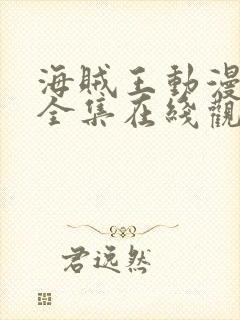 海賊王動漫
全集在綫觀
君逸然